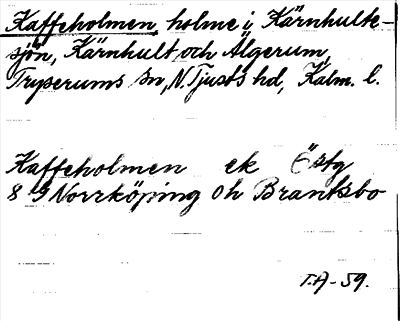 Kaffeholmen, holme i Kärnhulte-
sjön, Kärnhult och Älgerum,
Tryserums sn, N. Tjusts hd, Kalm. l.
Kaffeholmen ek Östg
8 S Norrköping Oh Brantsbo
T.A-59.